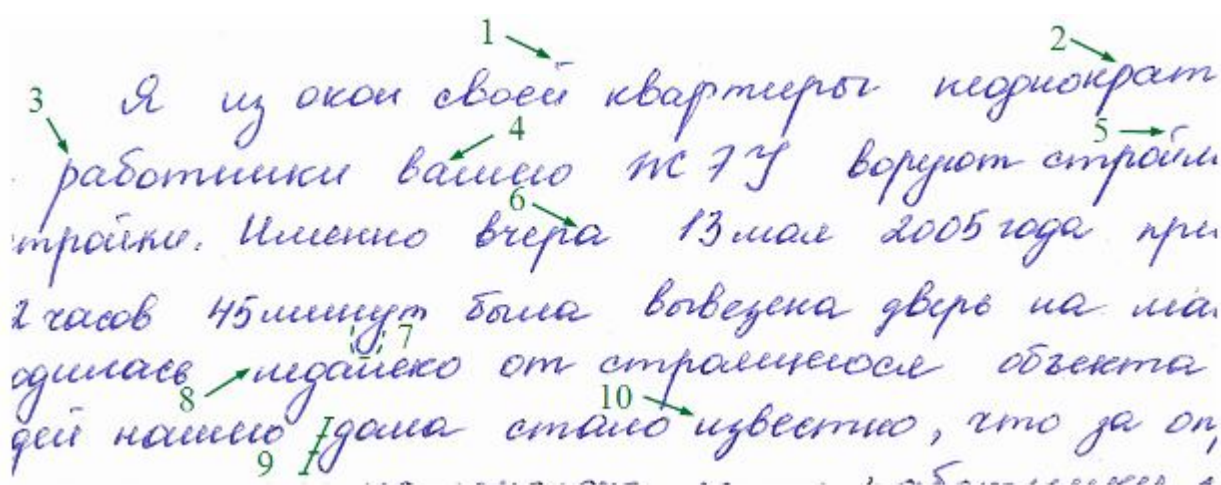 1 2
Я из окон своей квартиры неоднократ
3 4 5
работники вашего ЖЭУ воруют стройм
6
тройки. Именно вчера 13 мая 2005 года при
2 часов 45 минут была вывезена дверь на ма
7
одилась недалеко от строящегося объекта
8 10
дей нашего дома стало известно, что за оп
9